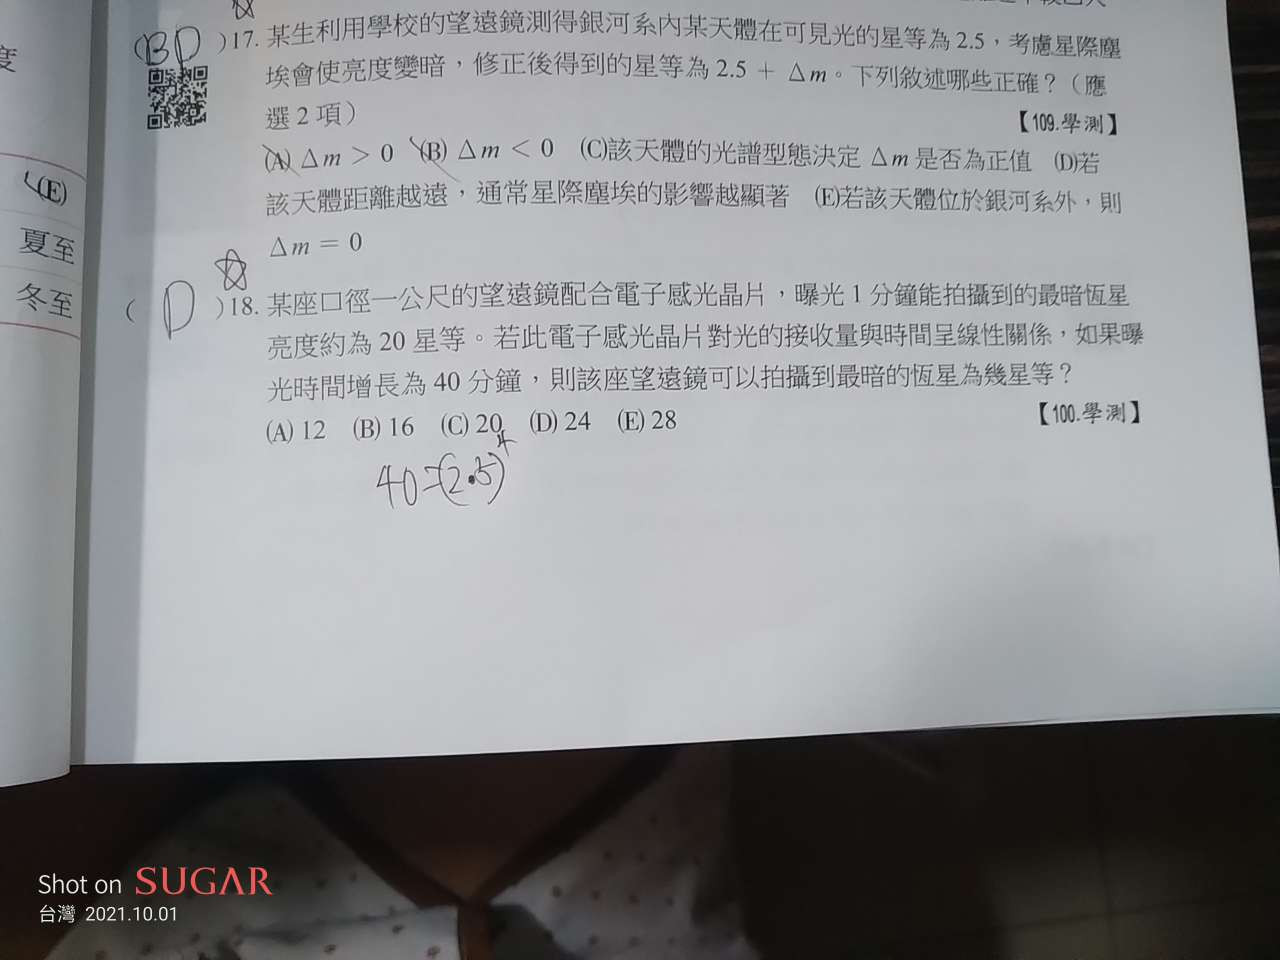 (BD)17. 某生利用學校的望遠鏡測得銀河系內某天體在可見光的星等為 2.5，考慮星際塵
埃會使亮度變暗，修正後得到的星等為 2.5 + Δm。下列敘述哪些正確？（應
選 2 項） 【109.學測】
(A) Δm > 0 (B) Δm < 0 (C)該天體的光譜型態決定 Δm 是否為正值 (D)若
該天體距離越遠，通常星際塵埃的影響越顯著 (E)若該天體位於銀河系外，則
Δm = 0
( D )18. 某座口徑一公尺的望遠鏡配合電子感光晶片，曝光 1 分鐘能拍攝到的最暗恆星
亮度約為 20 星等。若此電子感光晶片對光的接收量與時間呈線性關係，如果曝
光時間增長為 40 分鐘，則該座望遠鏡可以拍攝到最暗的恆星為幾星等？
(A) 12 (B) 16 (C) 20 (D) 24 (E) 28 【100.學測】
40=(2.5)^4
度
(E)
夏至
冬至
Shot on SUGAR
台灣 2021.10.01